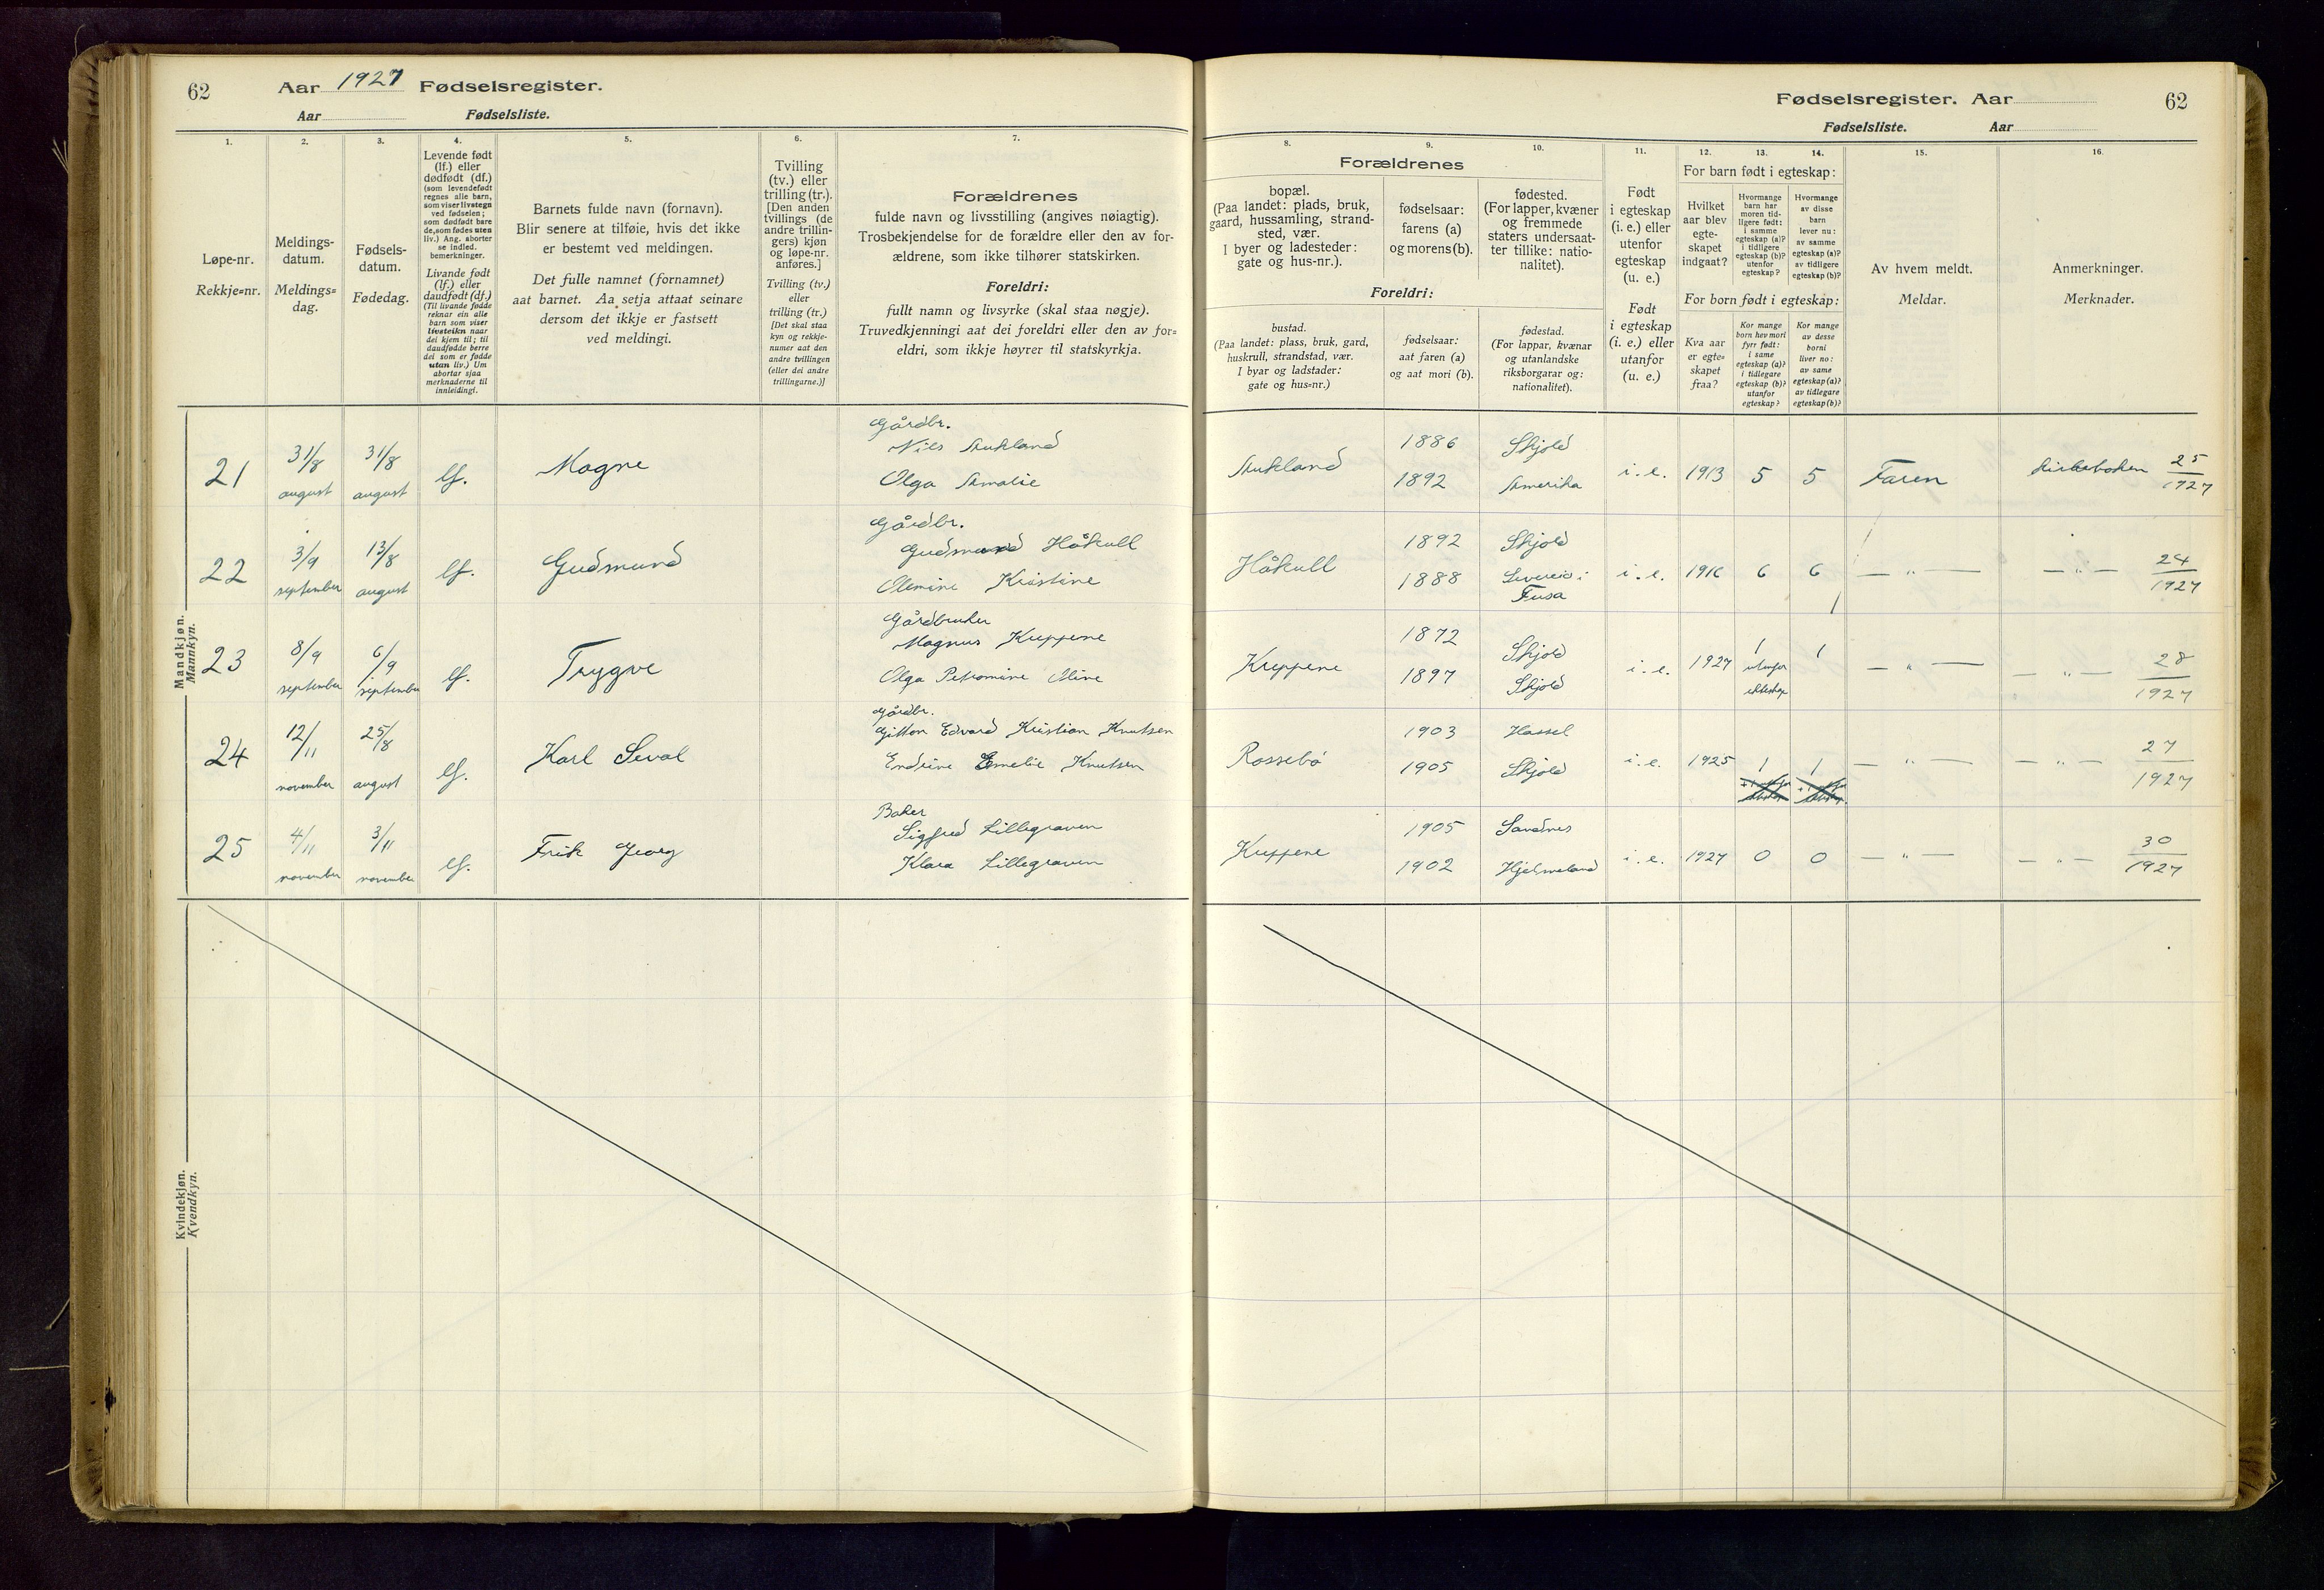 62
Aar 1927 Fødselsregister.
Aar Fødselsliste.
1.
Løpe-nr.
Rekkje=nr.
2.
Meldings-
datum.
Meldings=
dag.
3.
Fødsels-
datum.
Fødedag.
4.
Levende født
(lf.) eller
dødfødt (df.)
(som levendefødt
regnes alle barn,
som viser livstegn
ved fødselen;
som dødfødt bare
de, som fødes uten
liv.) Ang. aborter
se indled.
bemerkninger.
Livande født
(lf.) eller
daudfødt (df.)
(Til livande fødde
reknar ein alle
barn som viser
livsteikn naar
dei kjem til; til
daudfødde berre
dei som er fødde
utan liv.) Um
abortar sjaa
merknaderne til
innleidingi.
5.
Barnets fulde navn (fornavn).
Blir senere at tilføie, hvis det ikke
er bestemt ved meldingen.
Det fulle namnet (fornamnet)
aat barnet. Aa setja attaat seinare
dersom det ikkje er fastsett
ved meldingi.
6.
Tvilling
(tv.) eller
trilling (tr.).
[Den anden
tvillings (de
andre trillin-
gers) kjøn
og løpe-nr.
anføres.]
Tvilling (tv.)
eller
trilling (tr.)
[Det skal staa
kyn og rekkje-
numer aat den
andre tvillingen
(eller dei andre
trillingarne.)]
7.
Forældrenes
fulde navn og livsstilling (angives nøiagtig).
Trosbekjendelse for de forældre eller den av for-
ældrene, som ikke tilhører statskirken.
Foreldri:
fullt namn og livsyrke (skal staa nøgje).
Truvedkjenningi aat dei foreldri eller den av for=
eldri, som ikkje høyrer til statskyrkja.
Mandkjøn.
Mannkyn.
21 31/8 august 31/8 august lf. Magne
Gårdbr.
Nils Stukland
Olga Amalie
22 3/9 september 13/8 august lf. Gudmund
Gårdbr.
Gudmund Håkull
Olemine Kristine
23 8/9 september 6/9 september lf. Trygve
Gårdbruker
Magnus Kreppene
Olga Petromine Oline
24 12/11 november 25/8 august lf. Karl Seval
Gårdbr.
Gitton Edvard Kristian Knutsen
Endrine Emelie Knutsen
25 4/11 november 3/11 november lf. Frik Georg
Baker
Sigfred Lillegraven
Klara Lillegraven
Kvindekjøn.
Kvendkyn.
Fødselsregister. Aar 62
Fødselsliste. Aar
8.
Forældrenes
bopæl.
(Paa landet: plads, bruk,
gaard, hussamling, strand-
sted, vær.
I byer og ladesteder:
gate og hus-nr.).
Foreldri:
bustad.
(Paa landet: plass, bruk, gard,
huskrull, strandstad, vær.
I byar og ladstader:
gate og hus=nr.)
9.
fødselsaar:
farens (a)
og morens (b).
fødselsaar:
aat faren (a)
og aat mori (b).
10.
fødested.
(For lapper, kvæner
og fremmede
staters undersaat-
ter tillike: natio-
nalitet).
fødestad.
(For lappar, kvænar
og utanlandske
riksborgarar og:
nationalitet).
11.
Født
i egteskap
(i. e.) eller
utenfor
egteskap
(u. e.)
Født
i egteskap
(i. e.) eller
utanfor
(u. e.)
For barn født i egteskap:
12.
Hvilket
aar blev
egte-
skapet
indgaat?
13.
Hvormange
barn har
moren tid-
ligere født:
i samme
egteskap (a)?
i tidligere
egteskap (b)?
utenfor
egteskap?
14.
Hvormange
av disse
barn
lever nu:
av samme
egteskap (a)?
av tidligere
egteskap (b)?
For born født i egteskap:
Kva aar
er egte=
skapet
fraa?
Kor mange
born hev mori
fyrr født:
i same
egteskap (a)?
i tidlegare
egteskap (b)?
utanfor
egteskap?
Kor mange
av desse
borni
liver no:
av same
egteskap (a)?
av tidlegare
egteskap (b)?
15.
Av hvem meldt.
Meldar.
16.
Anmerkninger.
Merknader.
Stukland 1886 Skjold
1892 Amerika i. e. 1913 5 5 Faren Kirkeboken 25/1927
Håkull 1892 Skjold
1888 Sævereid i Fusa i. e. 1916 6 6 — " — — " — 24/1927
Kreppene 1872 Skjold
1897 Skjold i. e. 1927 1 utenfor ekteskap 1 — " — — " — 28/1927
Rossebø 1903 Hassel
1905 Skjold i. e. 1925 1 1 — " — — " — 27/1927
Kreppene 1905 Sandnes
1902 Hjelmeland i. e. 1927 0 0 — " — — " — 30/1927